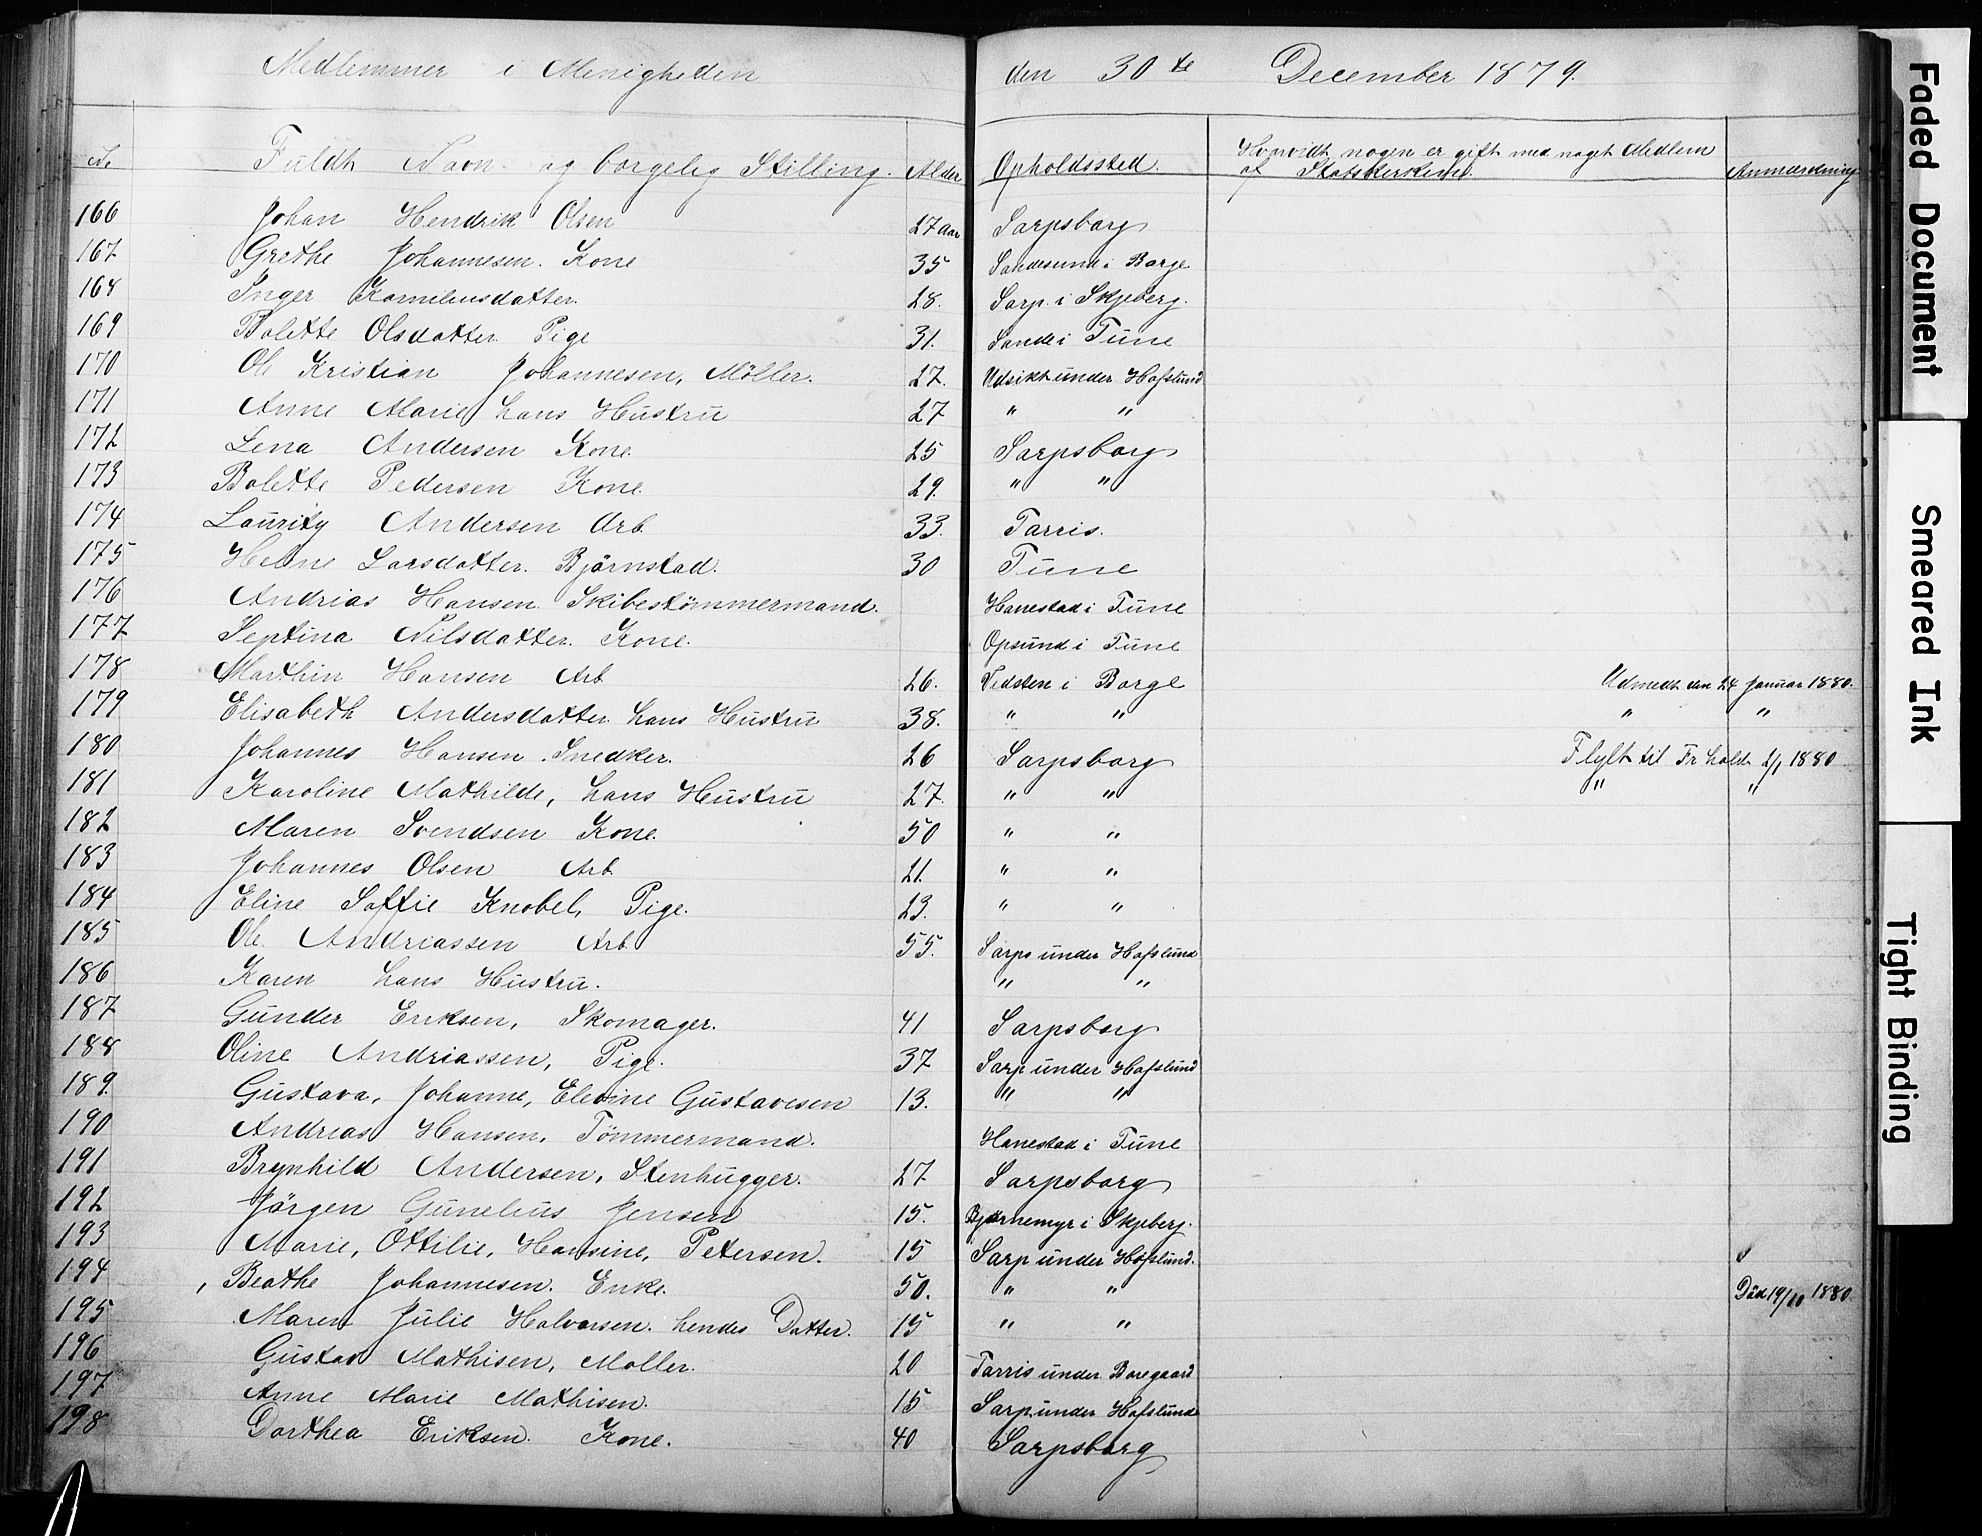 Medlemmer i Menigheden den 30te December 1879.
No Fuldt Navn og borgelig Stilling. Alder Opholdssted. Hvorvidt nogen er gift med noget Medlem af Statskirken. Anmærkning
166 Johan Hendrik Olsen 27 aar Sarpsborg
167 Grethe Johannesen. Kone 35 Sandesund i Borge
168 Inger Korneliusdatter. 28. Sarp. i Skjeberg.
169 Bolette Olsdatter Pige 31. Sande i Tune
170 Ole Kristian Johannesen, Möller. 27. Udsikt under Hafslund
171 Anne Marie hans Hustru 27 " "
172 Lena Andersen Kone. 25 Sarpsborg
173 Bolette Pedersen Kone. 29. " "
174 Lauritz Andersen Arb. 33. Tarris.
175 Helene Larsdatter. Björnstad. 30 Tune
176 Andrias Hansen. Skibestömmermand. Hanestad i Tune
177 Septina Nilsdatter. Kone. Opsund i Tune
178 Marthin Hansen Arb 26. Vedsten i Borge Udmedt den 24 Januar 1880.
179 Elisabeth Andersdatter hans Hustru 38. " " " "
180 Johannes Hansen. Snedker. 26 Sarpsborg Flylt til Fr hald 2/1 1880
181 Karoline Mathilde, hans Hustru 27. " " " "
182 Maren Svendsen Kone. 50 " "
183 Johannes Olsen Arb. 21. " "
184 Eline Soffie Knobel, Pige. 23. " "
185 Ole Andriassen Arb 55. Sarps under Hafslund
186 Karen hans Hustru. " "
187 Gunder Eriksen, Skomager. 41 Sarpsborg
188 Oline Andriassen, Pige. 37 Sarp under Hafslund
189. Gustava, Johanne, Elevine Gustavesen 13. " "
190 Andreas Hansen, Tömmermand. Hanestad i Tune
191 Brynhild Andersen, Stenhugger. 27 Sarpsborg
192 Jörgen Gunelius Jensen 15. Bjørnemyr i Skjeberg.
193 Marie, Ottilie, Hansine, Petersen. 15 Sarp under Hafslund.
194 Beathe Johannesen. Enke. 50. " " Död 19/10 1880.
195 Maren Julie Halvorsen. hendes Datter. 15 " "
196 Gustav Mathisen, Moller. 20 Tarris under Boregaard
197 Anne Marie Mathisen. 15 Sarp under Hafslund
198 Dorthea Eriksen. Kone. 40 Sarpsborg
Faded Document
Smeared Ink
Tight Binding